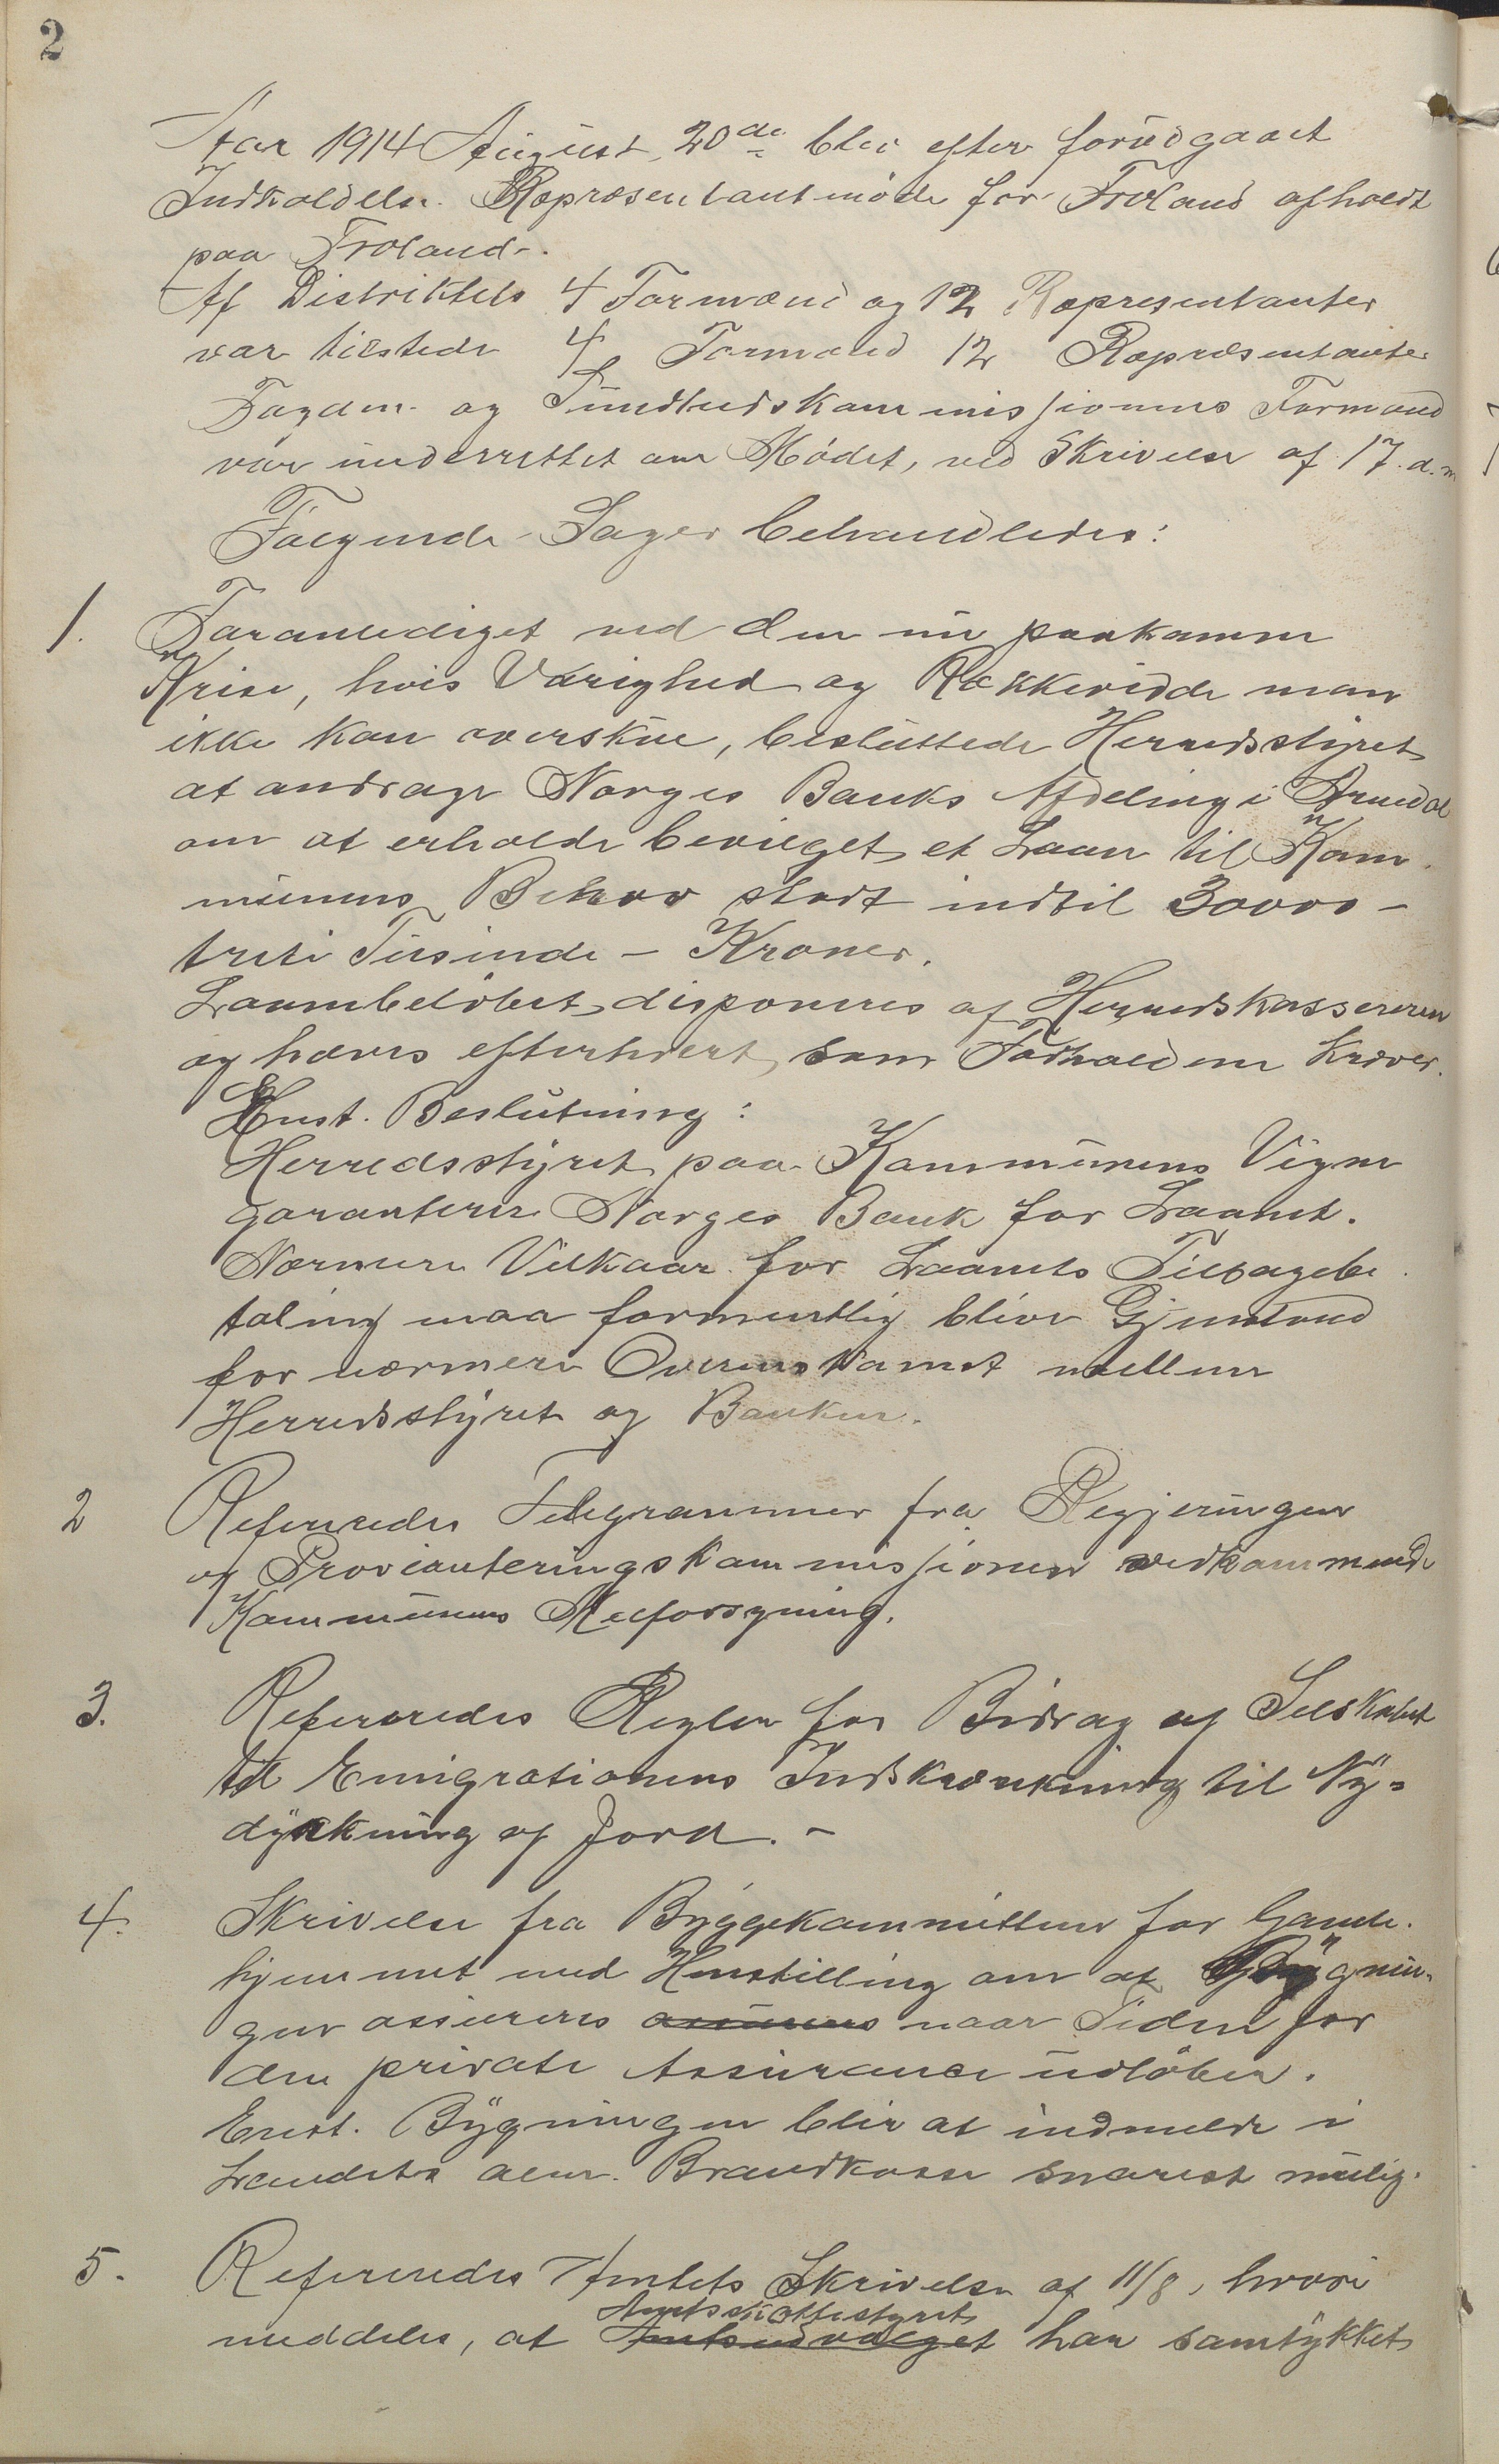 2
Aar 1914 August, 20de blev efter forudgaaet
Indkaldelse Repræsentantmøde for Froland afholdt
paa Froland.
Af Distriktets 4 Formænd og 12 Repræsentanter
var tilstede 4 Formænd 12 Repræsentanter
Fogden og Sundhedskommissionens Formand
var underrettet om Mødet, ved Skrivelse af 17. d.m
Følgende Sager behandledes:
1. Foranlediget ved den nu paakomne
Krise, hvis Varighed og Rækkevidde man
ikke kan overskue, besluttede Herredsstyret
at andrage Norges Banks Afdeling i Arendal
om at erholde bevilget et Laan til Kom-
munens Behov stort indtil 30000 -
treti Tusinde - Kroner.
Laanebeløbet disponeres af Herredskassereren
og hæves efterhvert, som Forholdene kræver.
Enst. Beslutning:
Herredsstyret paa Kommunens Vegne
garanterer Norges Bank for Laanet.
Nærmere Vilkaar for Laanets Tilbagebe-
taling maa formentlig blive Gjenstand
for nærmere Overenskomst mellem
Herredsstyret og Banken.
2 Refereredes Telegrammer fra Regjeringen
og Provianteringskommissionen vedkommende
Kommunens Melforsyning.
3. Refereredes Regler for Bidrag af Selskabet
til Emigrationens Indskrænkning til Ny=
dyrkning af Jord. -
4. Skrivelse fra Byggekommitteen for Gamle-
hjemmet med Henstilling om at Bygnin-
gen assureres assureres naar Tiden for
den private Assurance udløber.
Enst. Bygningen blir at indmelde i
Landets alm. Brandkasse snarest mulig.
5. Refereredes Amtets Skrivelse af 11/8, hvori
Amtsskattestyret
meddeles, at Amtsudvalget har samtykket